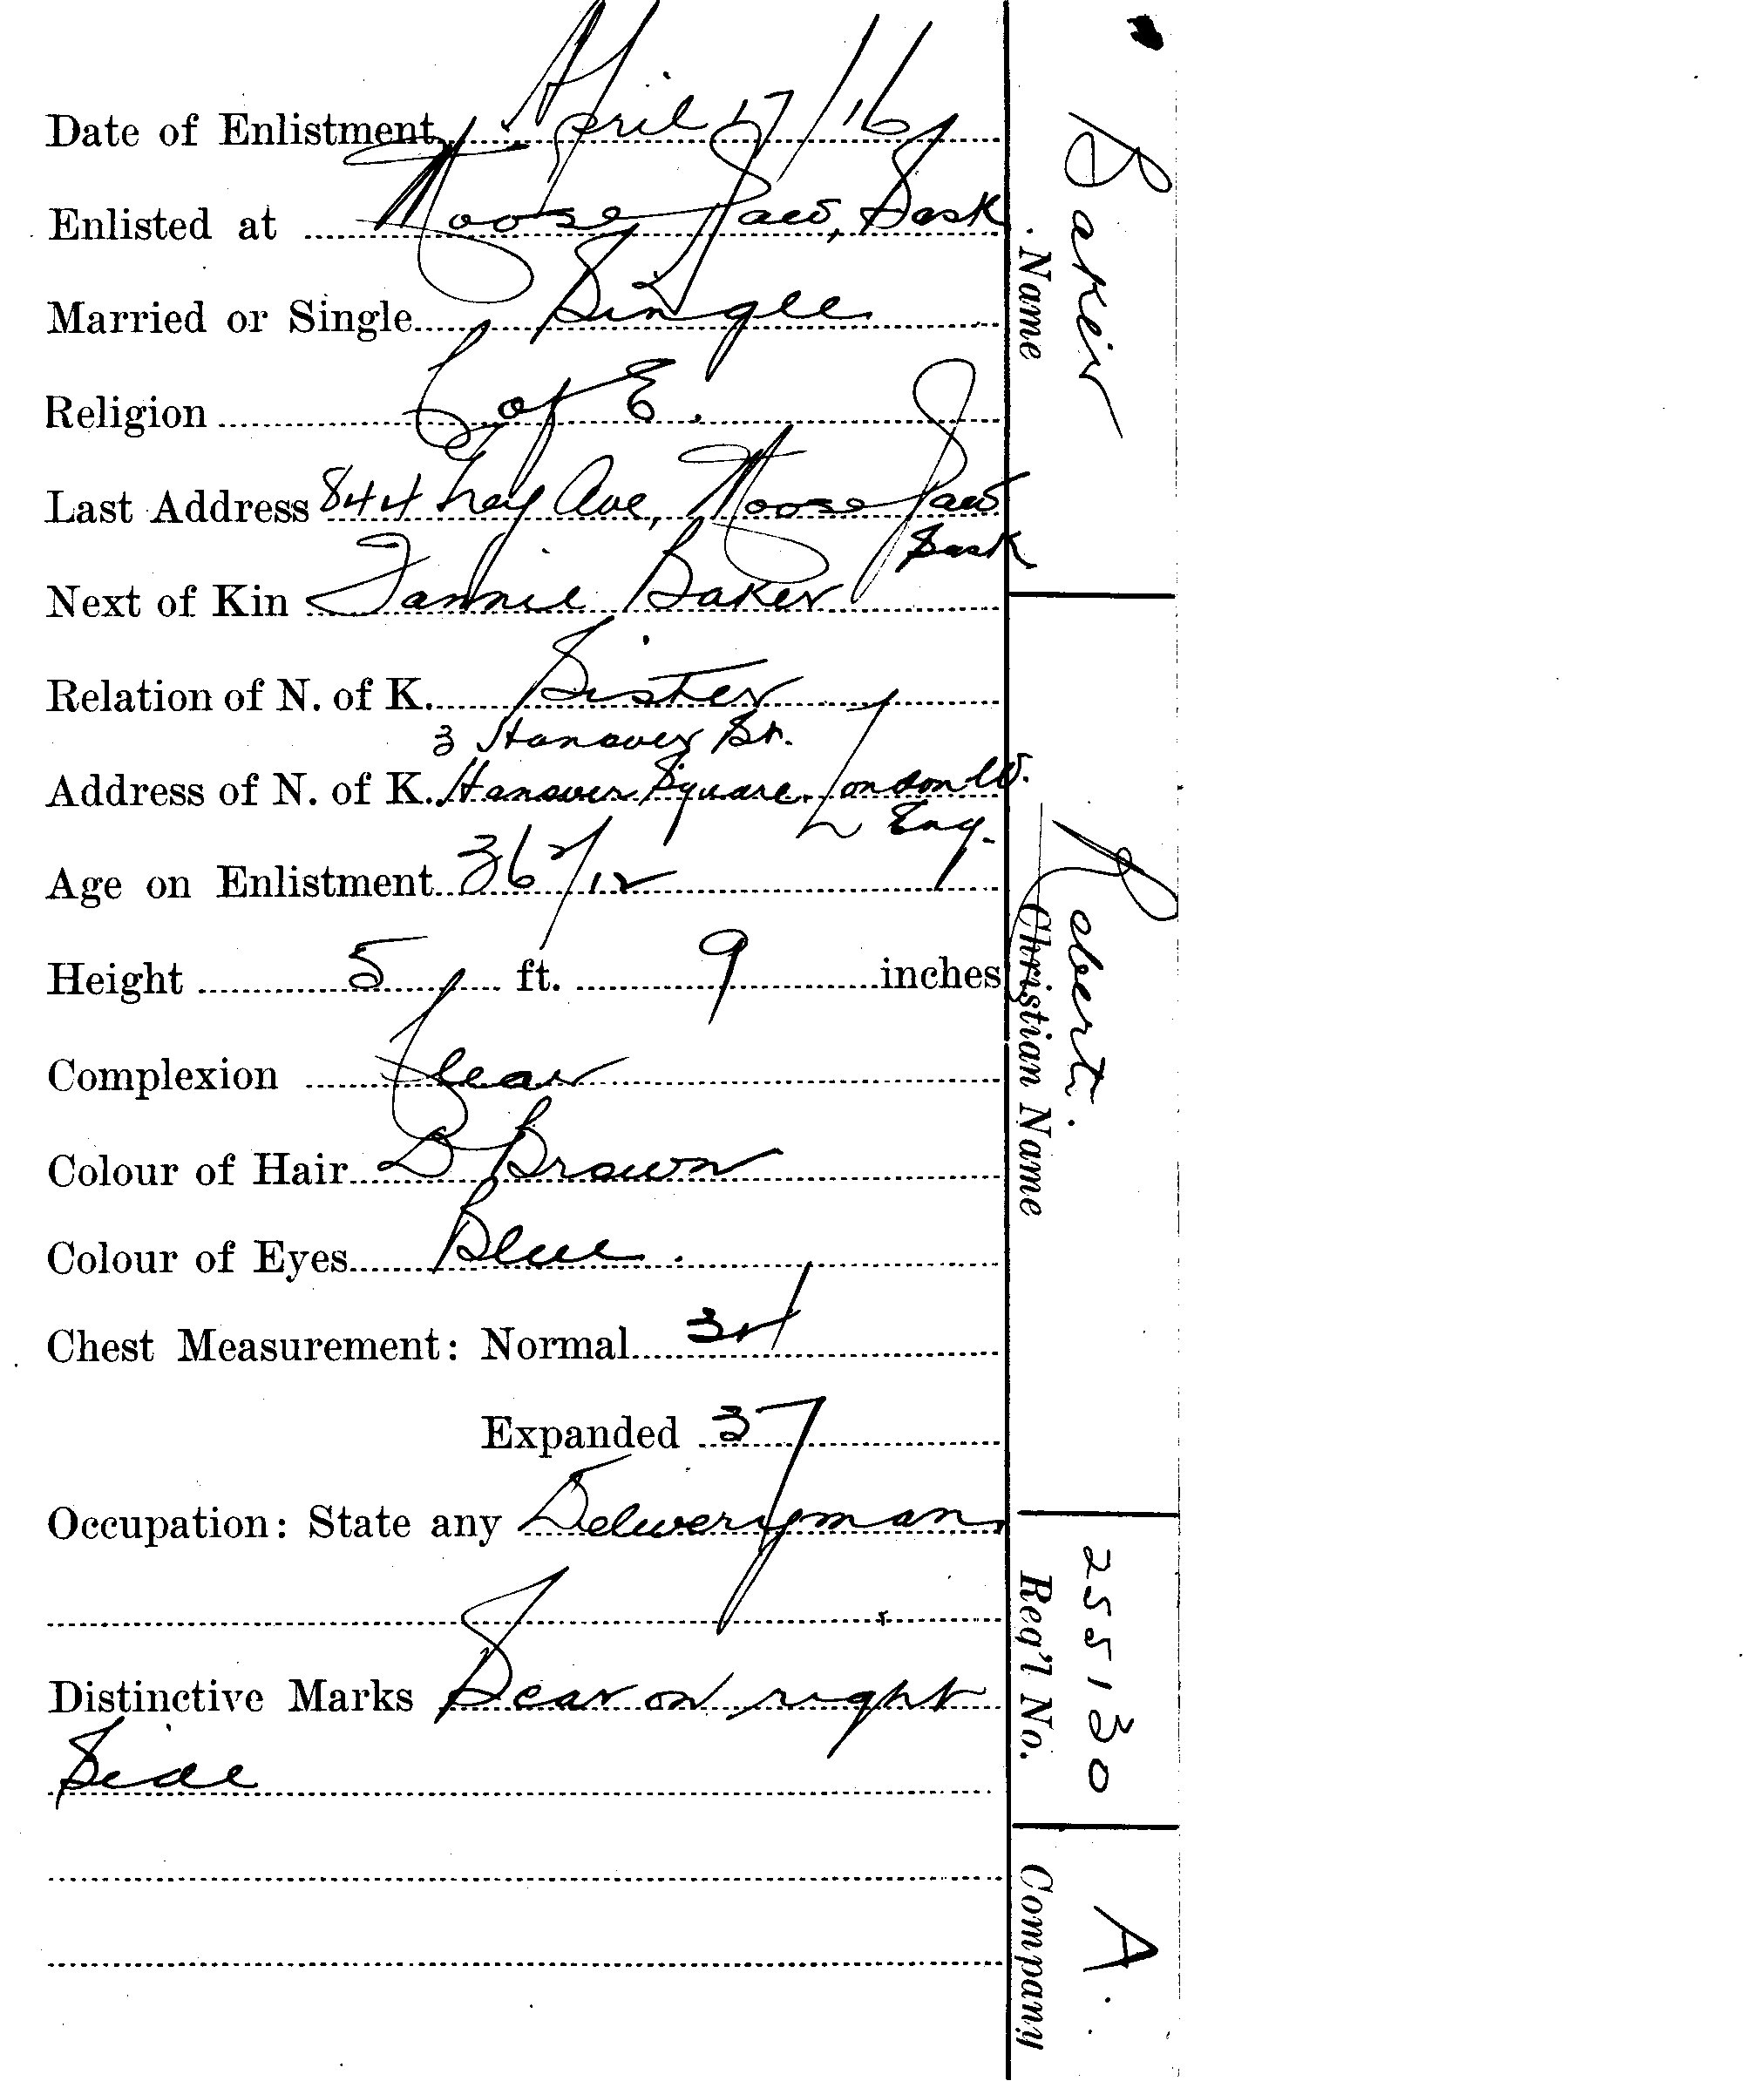 Date of Enlistment April 17/16
Enlisted at Moose Jaw, Sask
Married or Single Single
Religion C of E.
Last Address 844 Ave, Moose Jaw
Sask
Next of Kin Fannie Baker
Relation of N. of K. Sister
3 Hanover St.
Address of N. of K. Hanover Square, London W.
Eng.
Age on Enlistment 36 2/12
Height 5 ft. 9 inches
Complexion Clear
Colour of Hair D Brown
Colour of Eyes Blue.
Chest Measurement: Normal 34
Expanded 37
Occupation: State any Deliveryman
Distinctive Marks Scar on right
Side
Name Baker
Christian Name Robert.
Reg'l No. 255130
Company A.